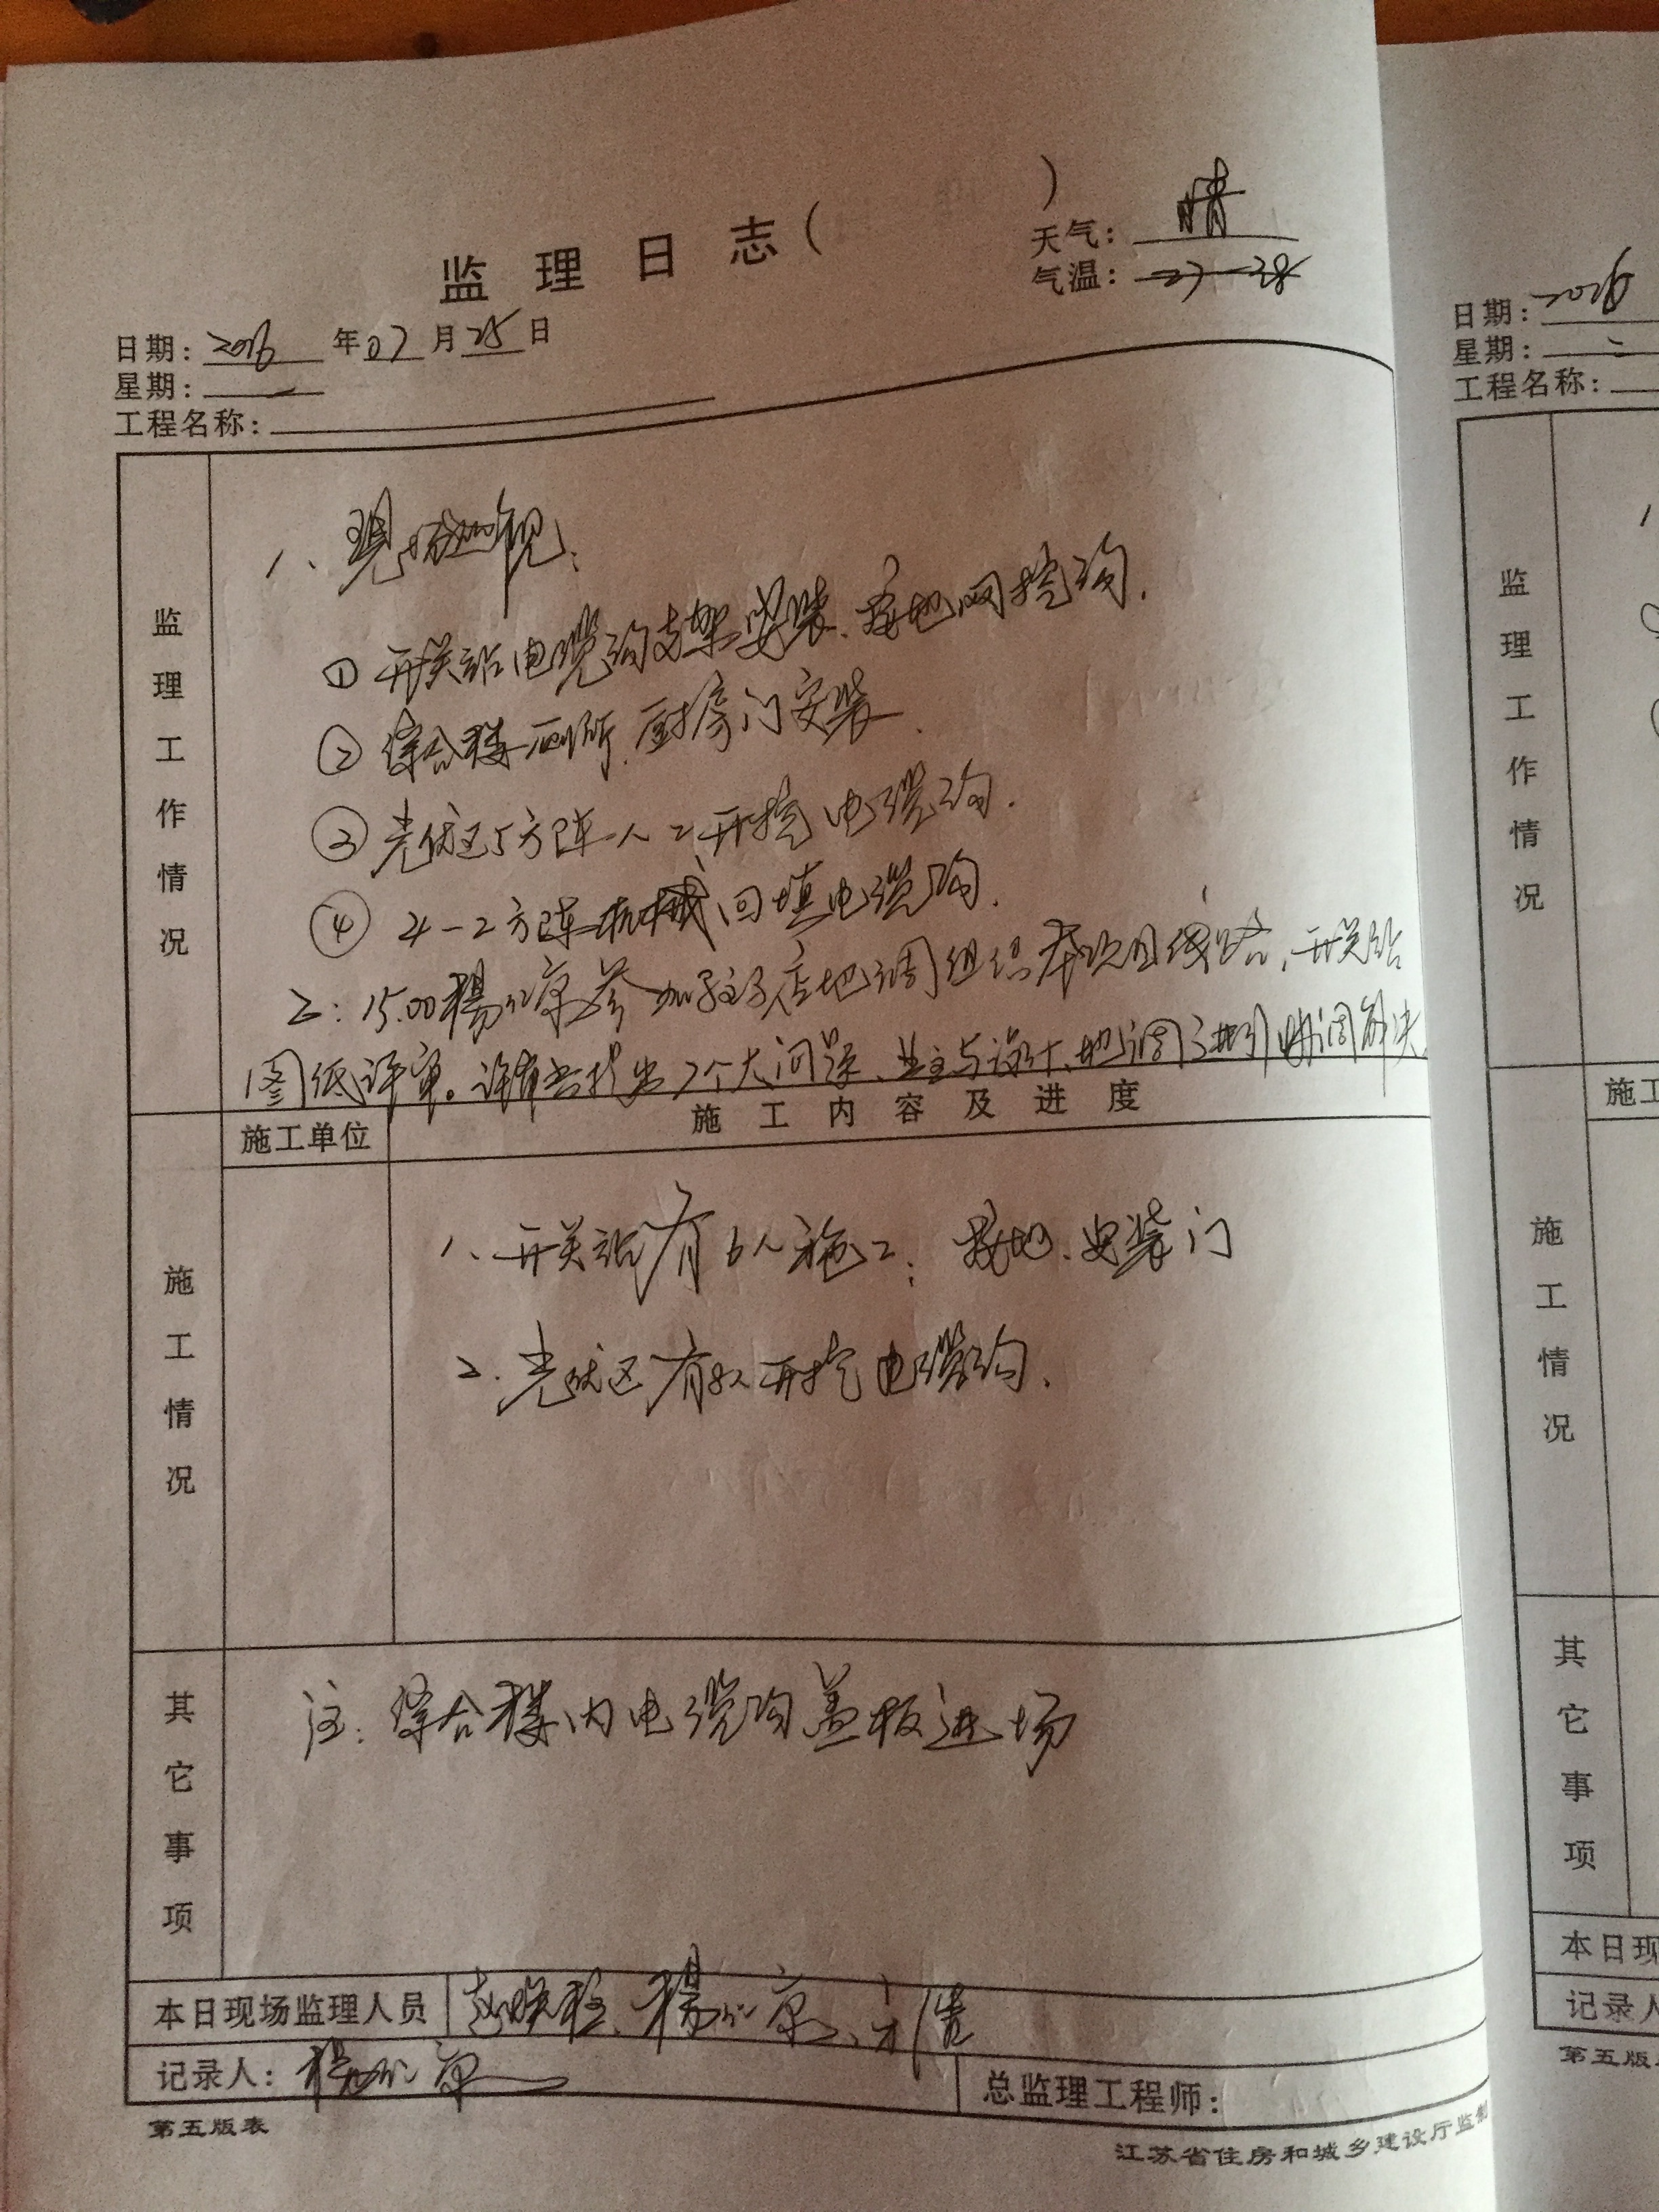 监理日志(          )
天气：晴
气温：27-38
日期：2016年07月25日
星期：一
工程名称：
监理工作情况
1、现场巡视：
① 开关站电缆沟支架安装、接地网挖沟.
② 综合楼厕所、厨房门安装.
③ 光伏区5方阵人工开挖电缆沟.
④ 4-2方阵机械回填电缆沟.
2：15:00杨 京参加 店地调组织本项目线路、开关站
图纸评审。评审会提出7个大问题、业主与设计、地调 协调解决
施工情况
施工单位 施工内容及进度
1、开关站有6人施工：接地、安装门
2.光伏区有8人开挖电缆沟.
其它事项
注：综合楼内电缆沟盖板进场
本日现场监理人员 杨 京、
记录人：杨 京
总监理工程师：
第五版表
江苏省住房和城乡建设厅监制
日期：2016
星期：二
工程名称：
监理工作情况
1
施工
施工情况
其它事项
本日现
记录人
第五版